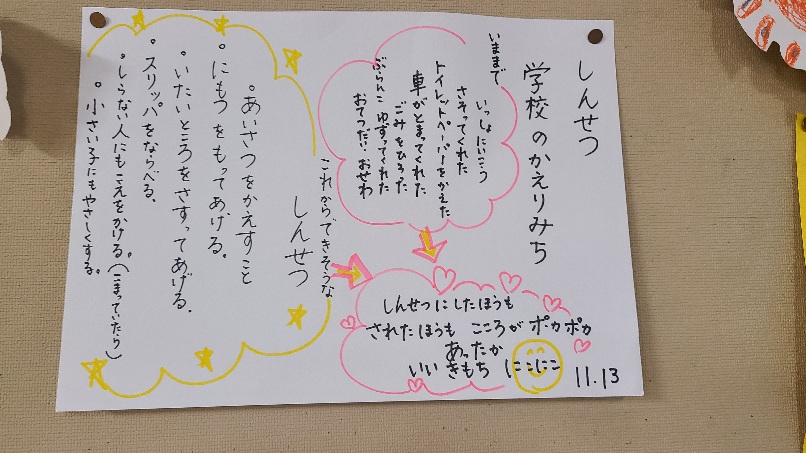 しんせつ
学校のかえりみち
いままで
いっしょにいこう
さそってくれた
トイレットペーパーをかえた
車がとまってくれた
ごみをひろった
ぶらんこ ゆずってくれた
おてつだい おせわ
これからできそうな
しんせつ
。あいさつをかえすこと
。にもつをもってあげる。
。いたいところをさすってあげる.
。スリッパをならべる.
。しらない人にもこえをかける。(こまっていたり)
。小さい子にもやさしくする。
しんせつにしたほうも
されたほうも こころが ポカポカ
あったか
いい きもち にこにこ
11.13